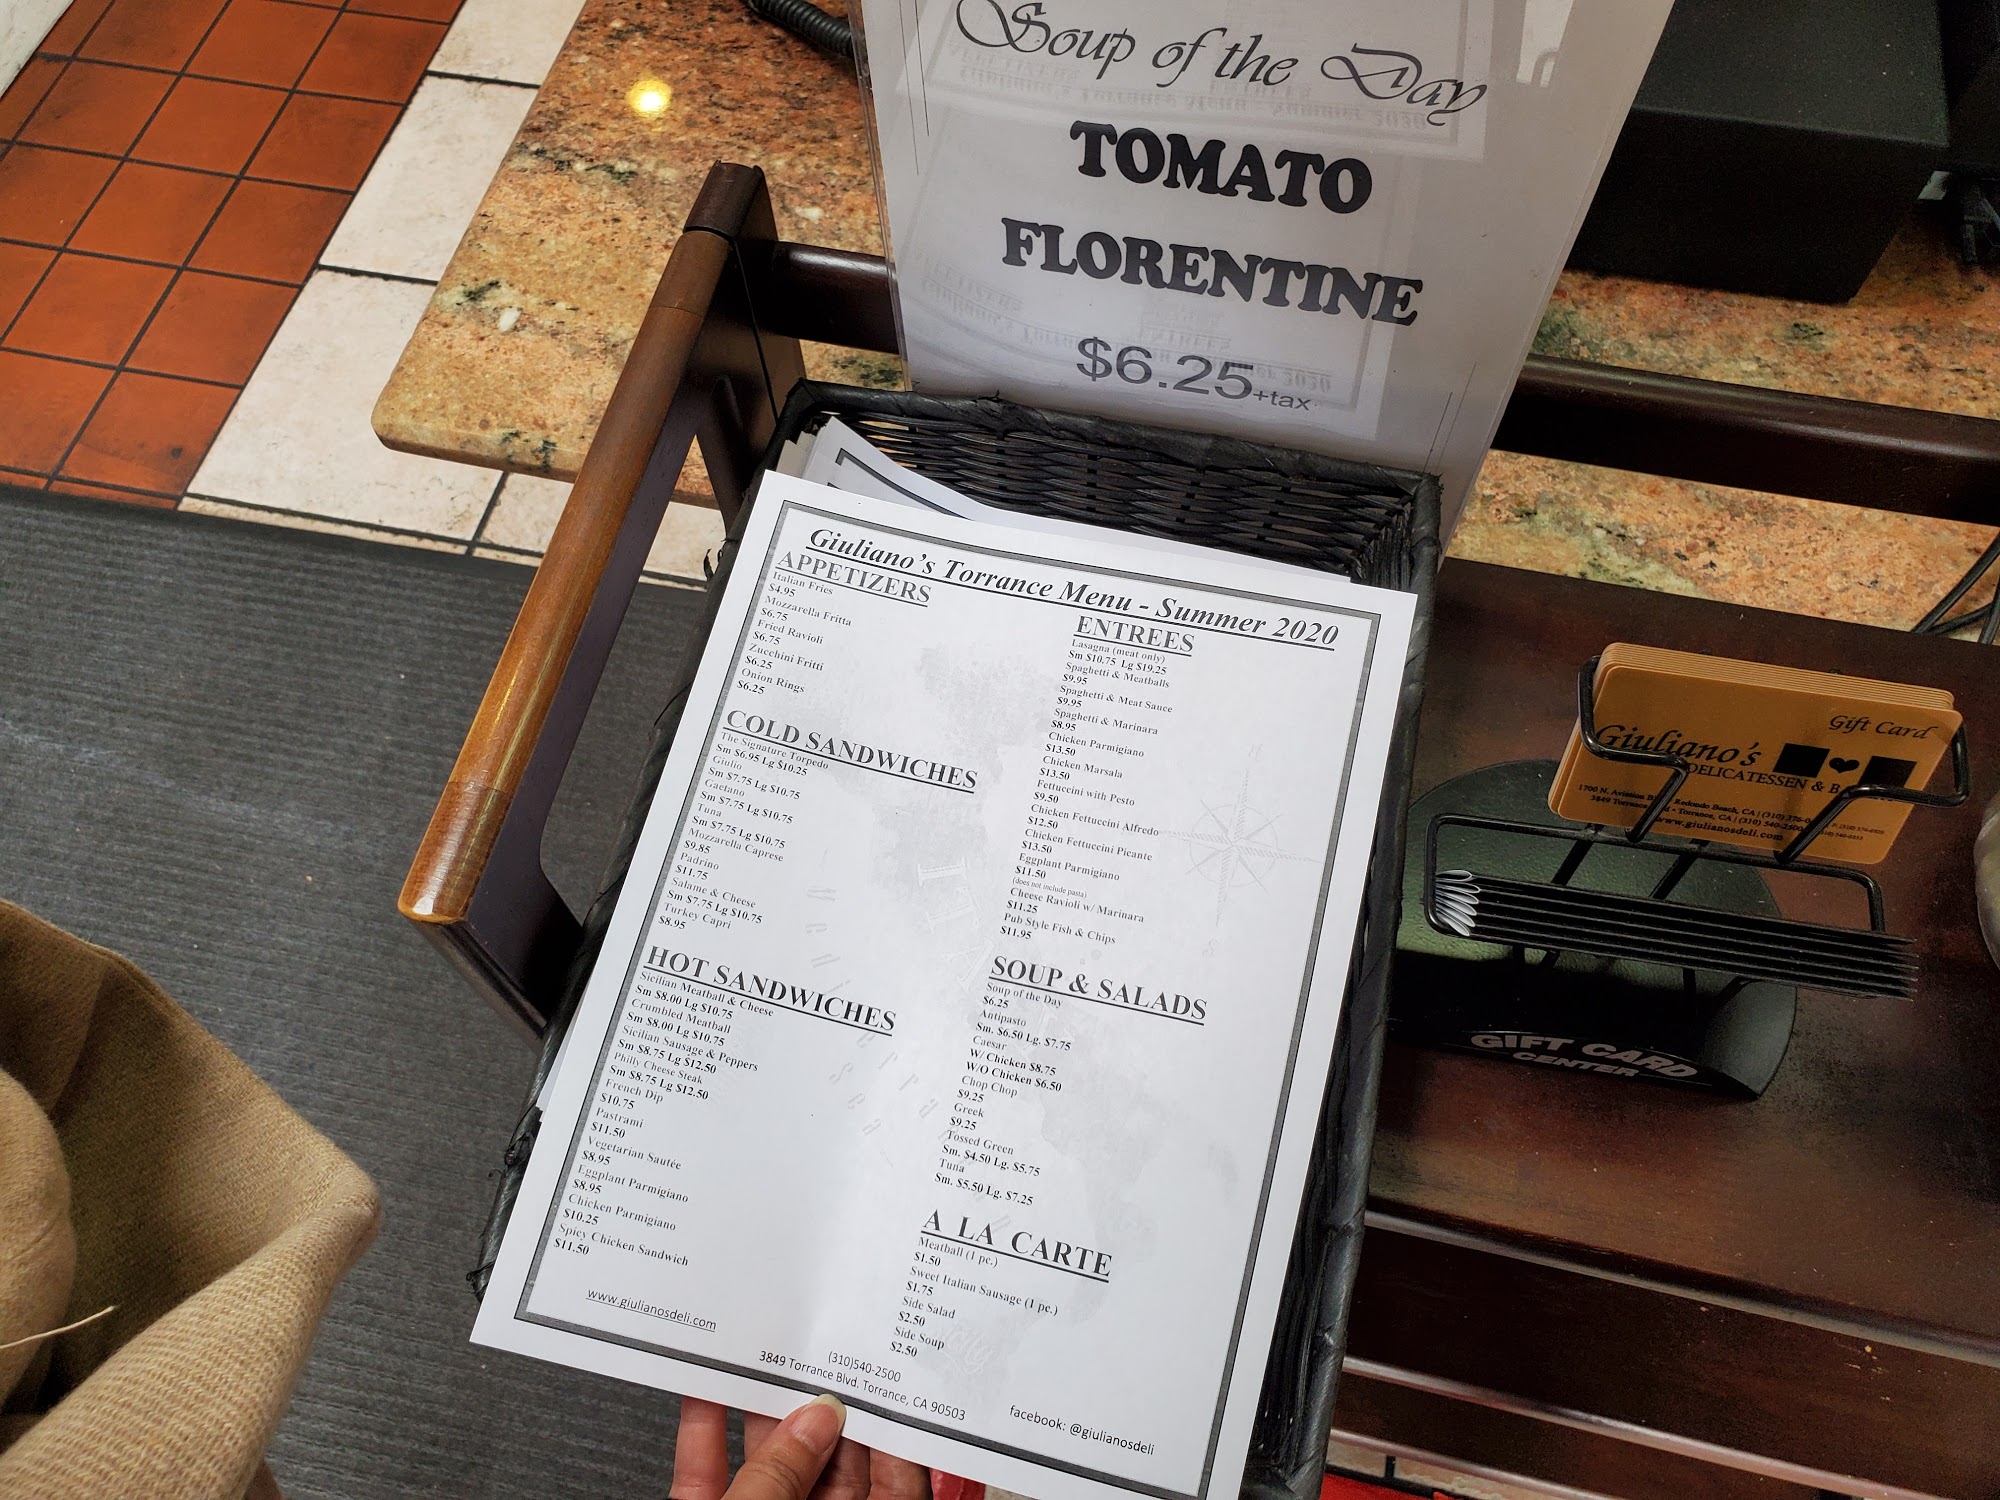 Soup of the Day
TOMATO
FLORENTINE
$6.25+tax
Giuliano's Torrance Menu - Summer 2020
APPETIZERS
Italian Fries
$4.95
Mozzarella Fritta
$6.75
Fried Ravioli
$6.75
Zucchini Fritti
$6.25
Onion Rings
$6.25
COLD SANDWICHES
The Signature Torpedo
Sm $6.95 Lg $10.25
Giulio
Sm $7.75 Lg $10.75
Gaetano
Sm $7.75 Lg $10.75
Tuna
Sm $7.75 Lg $10.75
Mozzarella Caprese
$9.85
Padrino
$11.75
Salame & Cheese
Sm $7.75 Lg $10.75
Turkey Capri
$8.95
HOT SANDWICHES
Sicilian Meatball & Cheese
Sm $8.00 Lg $10.75
Crumbled Meatball
Sm $8.00 Lg $10.75
Sicilian Sausage & Peppers
Sm $8.75 Lg $12.50
Philly Cheese Steak
Sm $8.75 Lg $12.50
French Dip
$10.75
Pastrami
$11.50
Vegetarian Sautée
$8.95
Eggplant Parmigiano
$8.95
Chicken Parmigiano
$10.25
Spicy Chicken Sandwich
$11.50
www.giulianosdeli.com
ENTREES
Lasagna (meat only)
Sm $10.75 Lg $19.25
Spaghetti & Meatballs
$9.95
Spaghetti & Meat Sauce
$9.95
Spaghetti & Marinara
$8.95
Chicken Parmigiano
$13.50
Chicken Marsala
$13.50
Fettuccini with Pesto
$9.50
Chicken Fettuccini Alfredo
$12.50
Chicken Fettuccini Picante
$13.50
Eggplant Parmigiano
$11.50
(does not include pasta)
Cheese Ravioli w/ Marinara
$11.25
Pub Style Fish & Chips
$11.95
SOUP & SALADS
Soup of the Day
$6.25
Antipasto
Sm. $6.50 Lg. $7.75
Caesar
W/ Chicken $8.75
W/O Chicken $6.50
Chop Chop
$9.25
Greek
$9.25
Tossed Green
Sm. $4.50 Lg. $5.75
Tuna
Sm. $5.50 Lg. $7.25
A LA CARTE
Meatball (1 pc.)
$1.50
Sweet Italian Sausage (1 pc.)
$1.75
Side Salad
$2.50
Side Soup
$2.50
(310)540-2500
3849 Torrance Blvd. Torrance, CA 90503
facebook: @giulianosdeli
Gift Card
Giuliano's
DELICATESSEN &
1700 N. Aviation Redondo Beach, CA | (310)
3849 Torrance • Torrance, CA | (310) 540-2500
www.giulianosdeli.com
GIFT CARD
CENTER